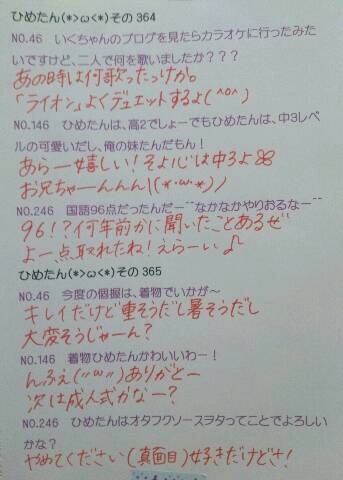 ひめたん(*>ω<*)その 364
NO.46　いくちゃんのブログを見たらカラオケに行ったみた
いですけど、二人で何を歌いましたか？？？
あの時は何歌ったっけか。
「ライオン」よくデュエットするよ(^o^)
NO.146　ひめたんは、高2でしょーでもひめたんは、中3レベ
ルの可愛いだし、俺の妹たんだもん！
あら一嬉しい！そよ心は中3よ
お兄ちゃーんんん\(*･ω･*)ﾉ
NO.246　国語96点だったんだー￣なかなかやりおるなー￣
96！？何年前かに聞いたことあるぜ
よー点取れたね！えらーい♪
ひめたん(*>ω<*)その 365
NO.46　今度の個握は、着物でいかが〜
キレイだけど重そうだし暑そうだし
大変そうじゃーん？
NO.146　着物ひめたんかわいいわー！
んふぇ("ω")ありがとー
次は成人式かなー？
NO.246　ひめたんはオタフクソースヲタってことでよろしい
かな？
やめてください(真面目)好きだけどさ！